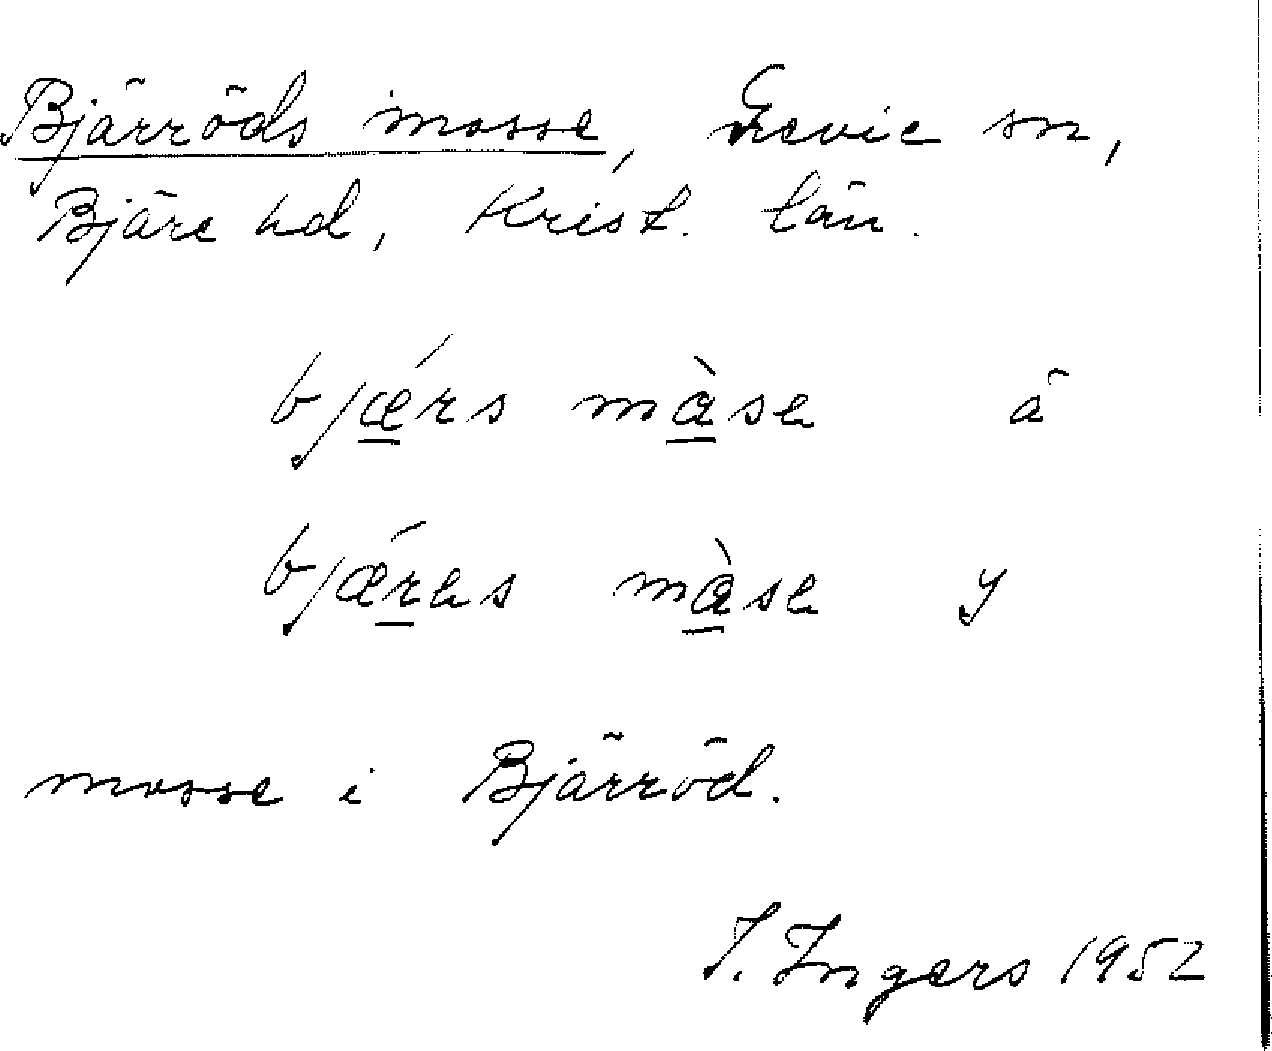 Bjärröds mosse, Grevie sn,
Bjäre hd, Krist. län.
bjǽrs màse ä
bjǽres màse y
mosse i Bjärröd.
I. Ingers 1952